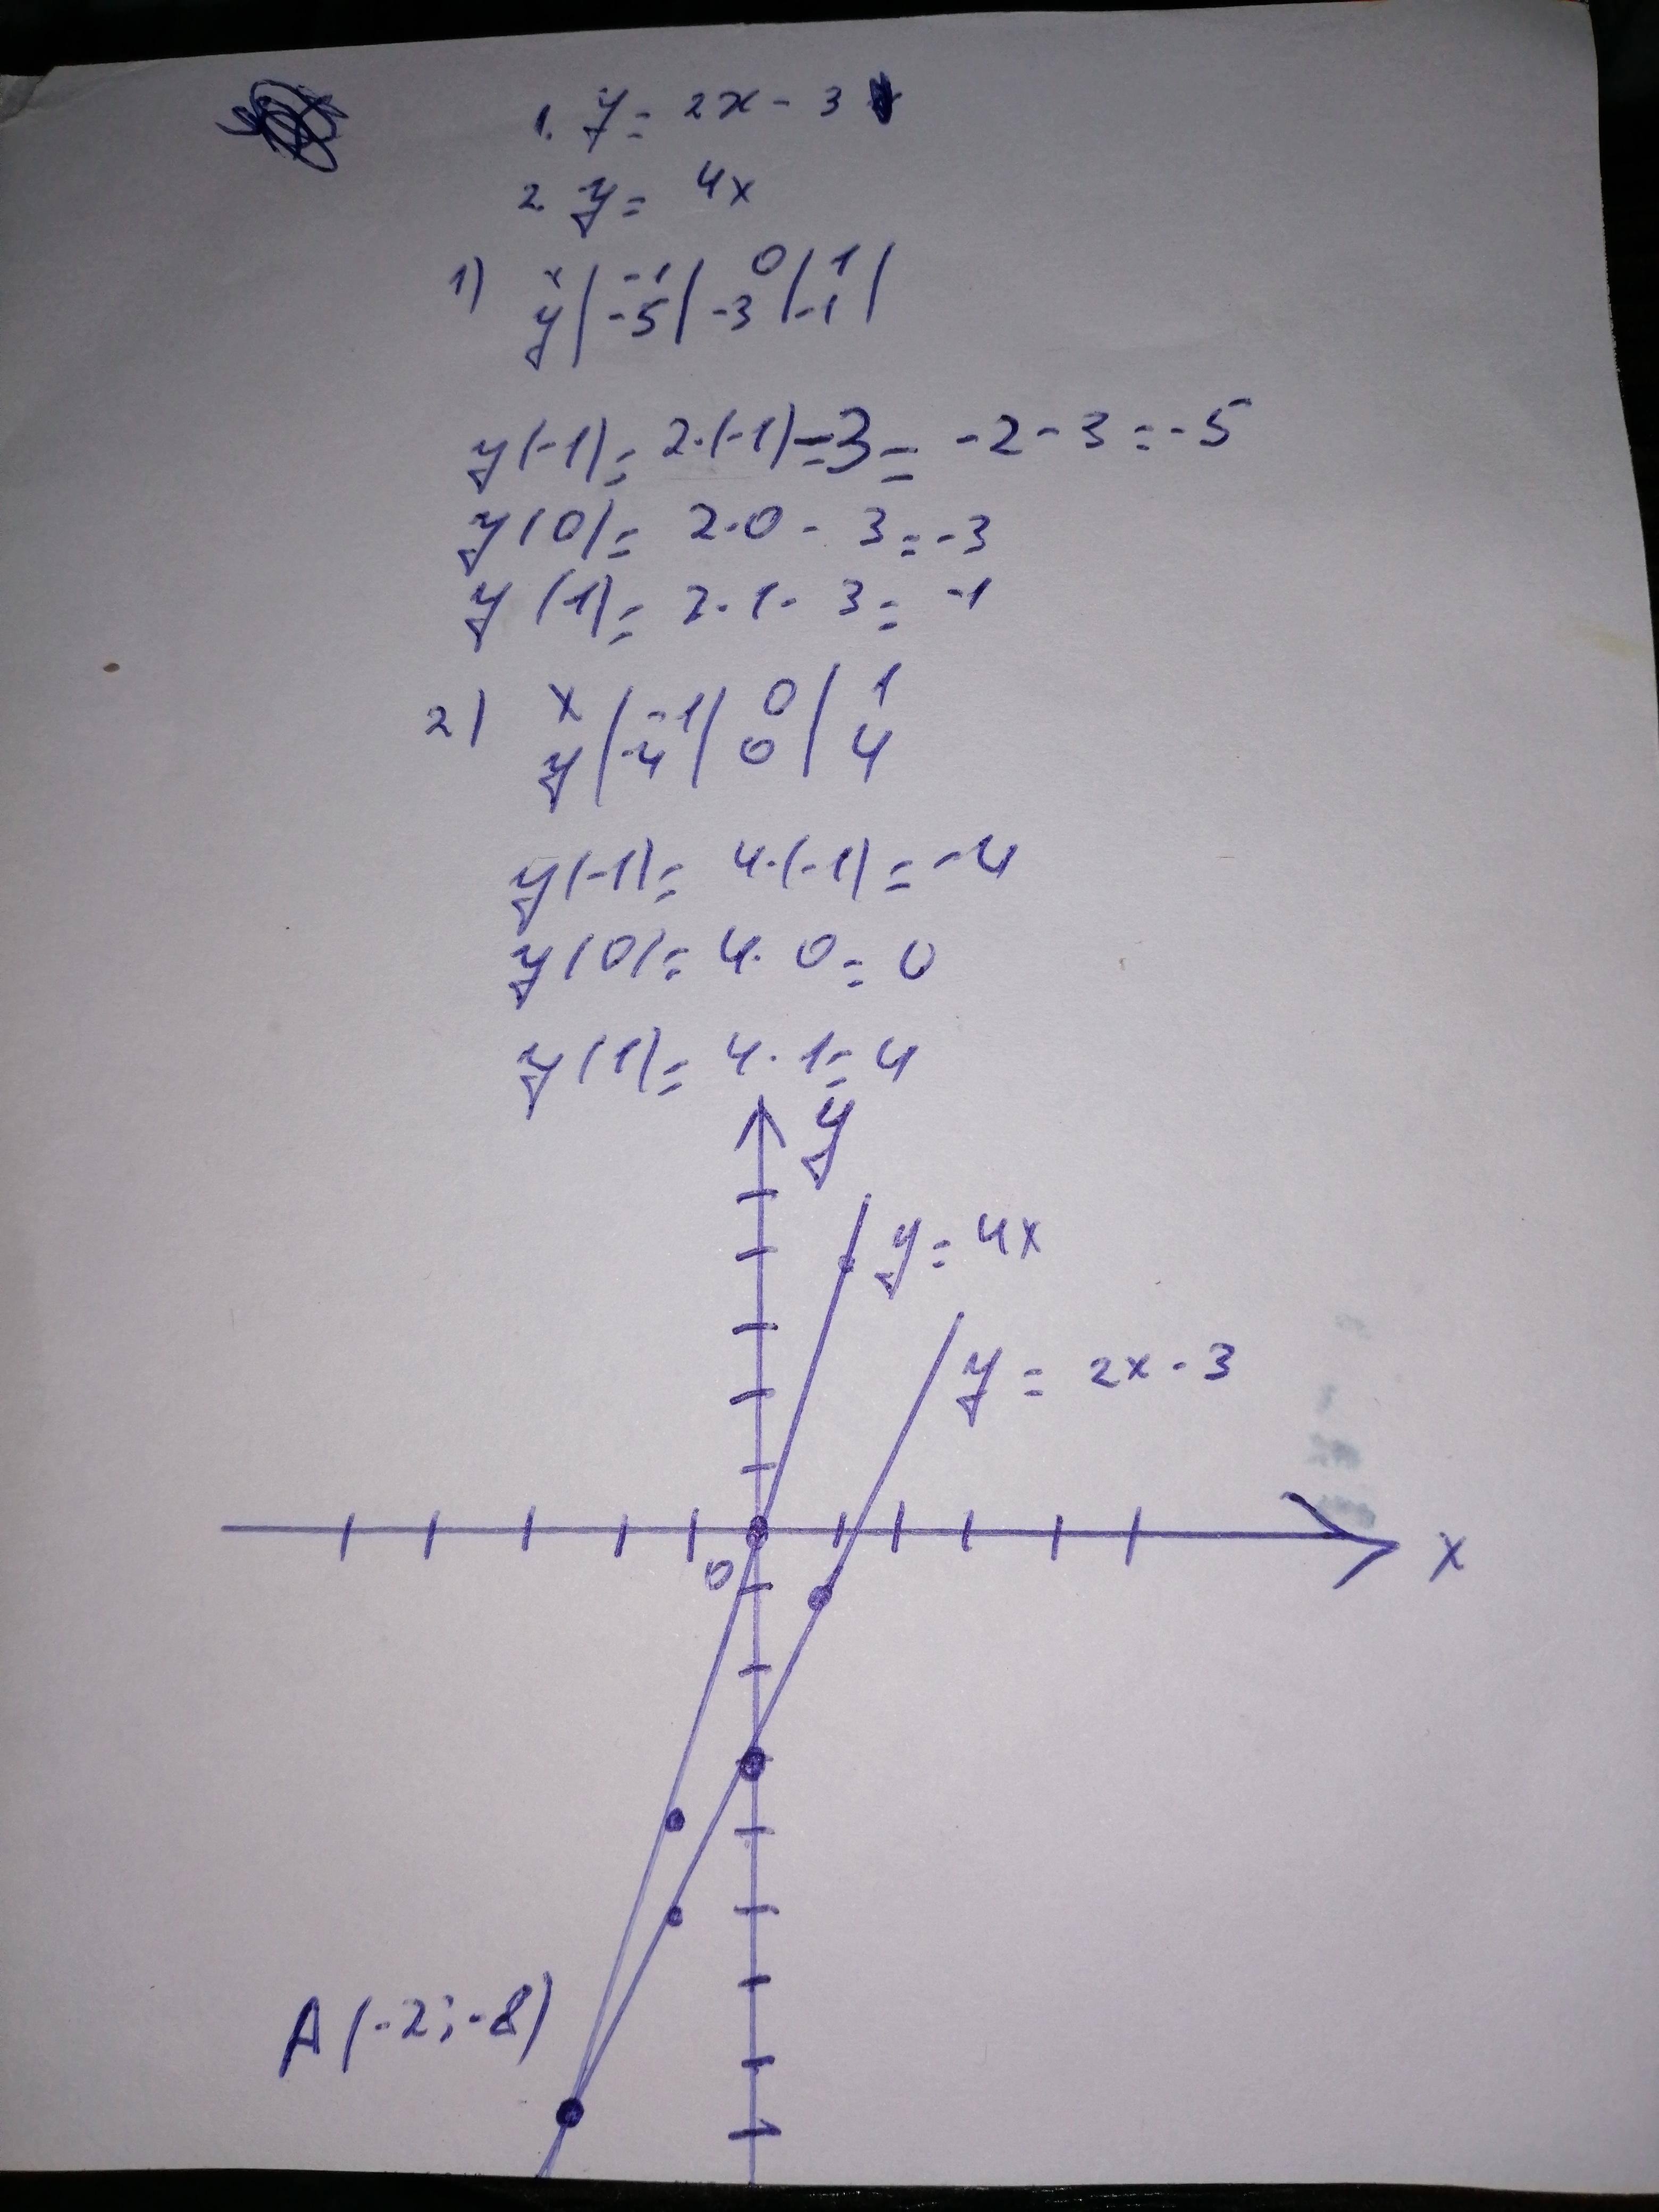 1. y = 2x - 3
2. y = 4x
1) x | -1 | 0 | 1 |
y | -5 | -3 | -1 |
y(-1) = 2·(-1) - 3 = -2 - 3 = -5
y(0) = 2·0 - 3 = -3
y(1) = 2·1 - 3 = -1
2) x | -1 | 0 | 1
y | -4 | 0 | 4
y(-1) = 4·(-1) = -4
y(0) = 4·0 = 0
y(1) = 4·1 = 4
y
y = 4x
y = 2x - 3
0
x
A(-2; -8)